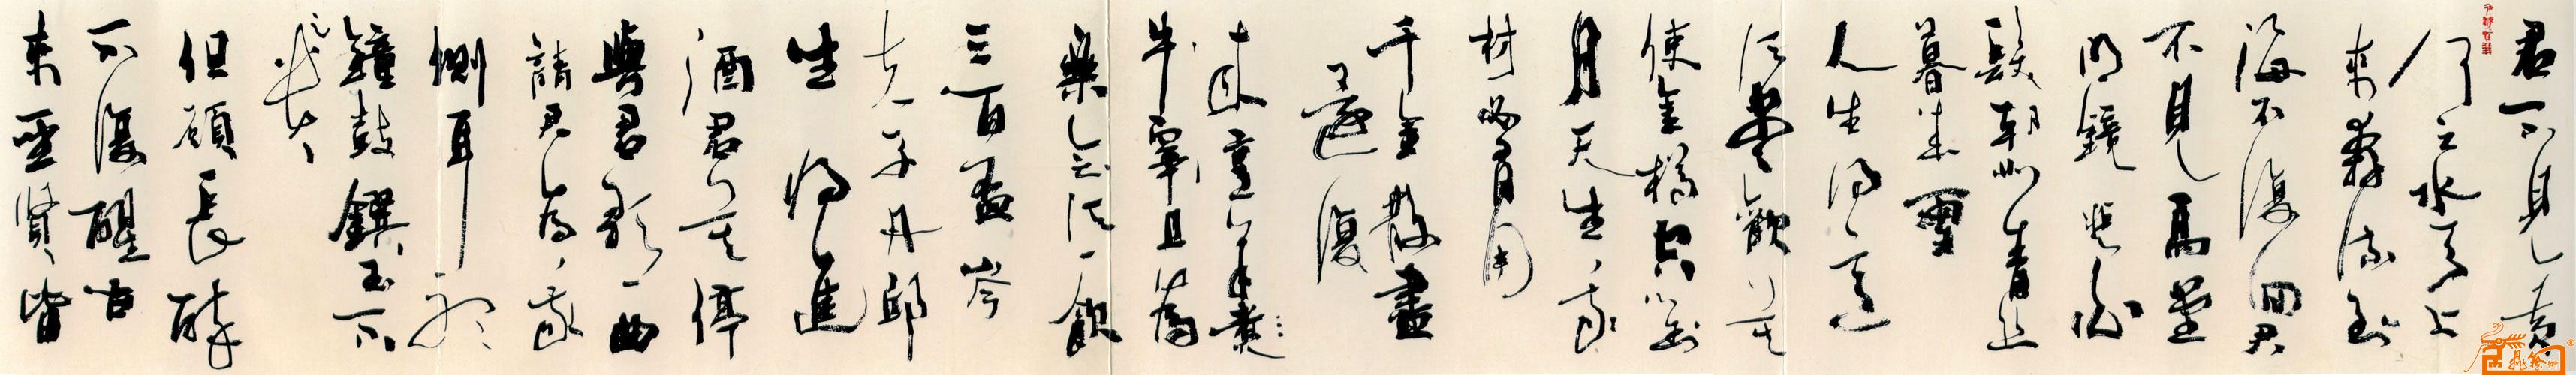 君不見黃
河之水天上
來奔流到
海不復回君
不見高堂
明鏡悲白
髮朝如青絲
暮成雪
人生得意
須盡歡莫
使金樽空對
月天生我
材必有用
千金散盡
還復
來烹羊
牛宰且為
樂會須一飲
三百盃岑
夫子丹邱
生將進
酒君莫停
與君歌一曲
請君為我
側耳聽
鐘鼓饌玉不
足貴
但願長醉
不復醒古
來聖賢皆